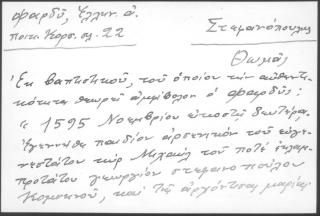 Φαρδύ, Ἑλλην. ἀ.
ποικ. Κορσ. σελ. 22
Στεφανόπουλος
Θωμᾶς
Ἐκ βαπτιστικοῦ, τοῦ ὁποίου τὴν αὐθεντι-
κότητα θεωρεῖ ἀμφίβολον ὁ Φαρδύς:
« 1595 Νοεμβρίου εἰκοστῇ δευτέρᾳ,
ἐγεννήθη παιδίον ἀρσενικὸν τοῦ εὐγε-
νεστάτου κὺρ Μιχαὴλ τοῦ ποτὲ ἐκλαμ-
προτάτου γεωργίου στεφανοπούλου
Κομνηνοῦ, καὶ τῆς ἀρχόντισσας μαρίας